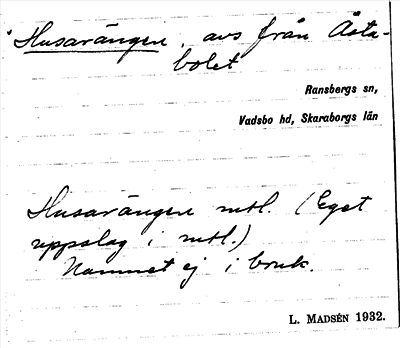 Husarängen, avs från Åsta-
bolet
Ransbergs sn,
Vadsbo hd, Skaraborgs län
Husarängen mtl. (Eget
uppslag i mtl.)
Namnet ej i bruk.
L. MADSÉN 1932.